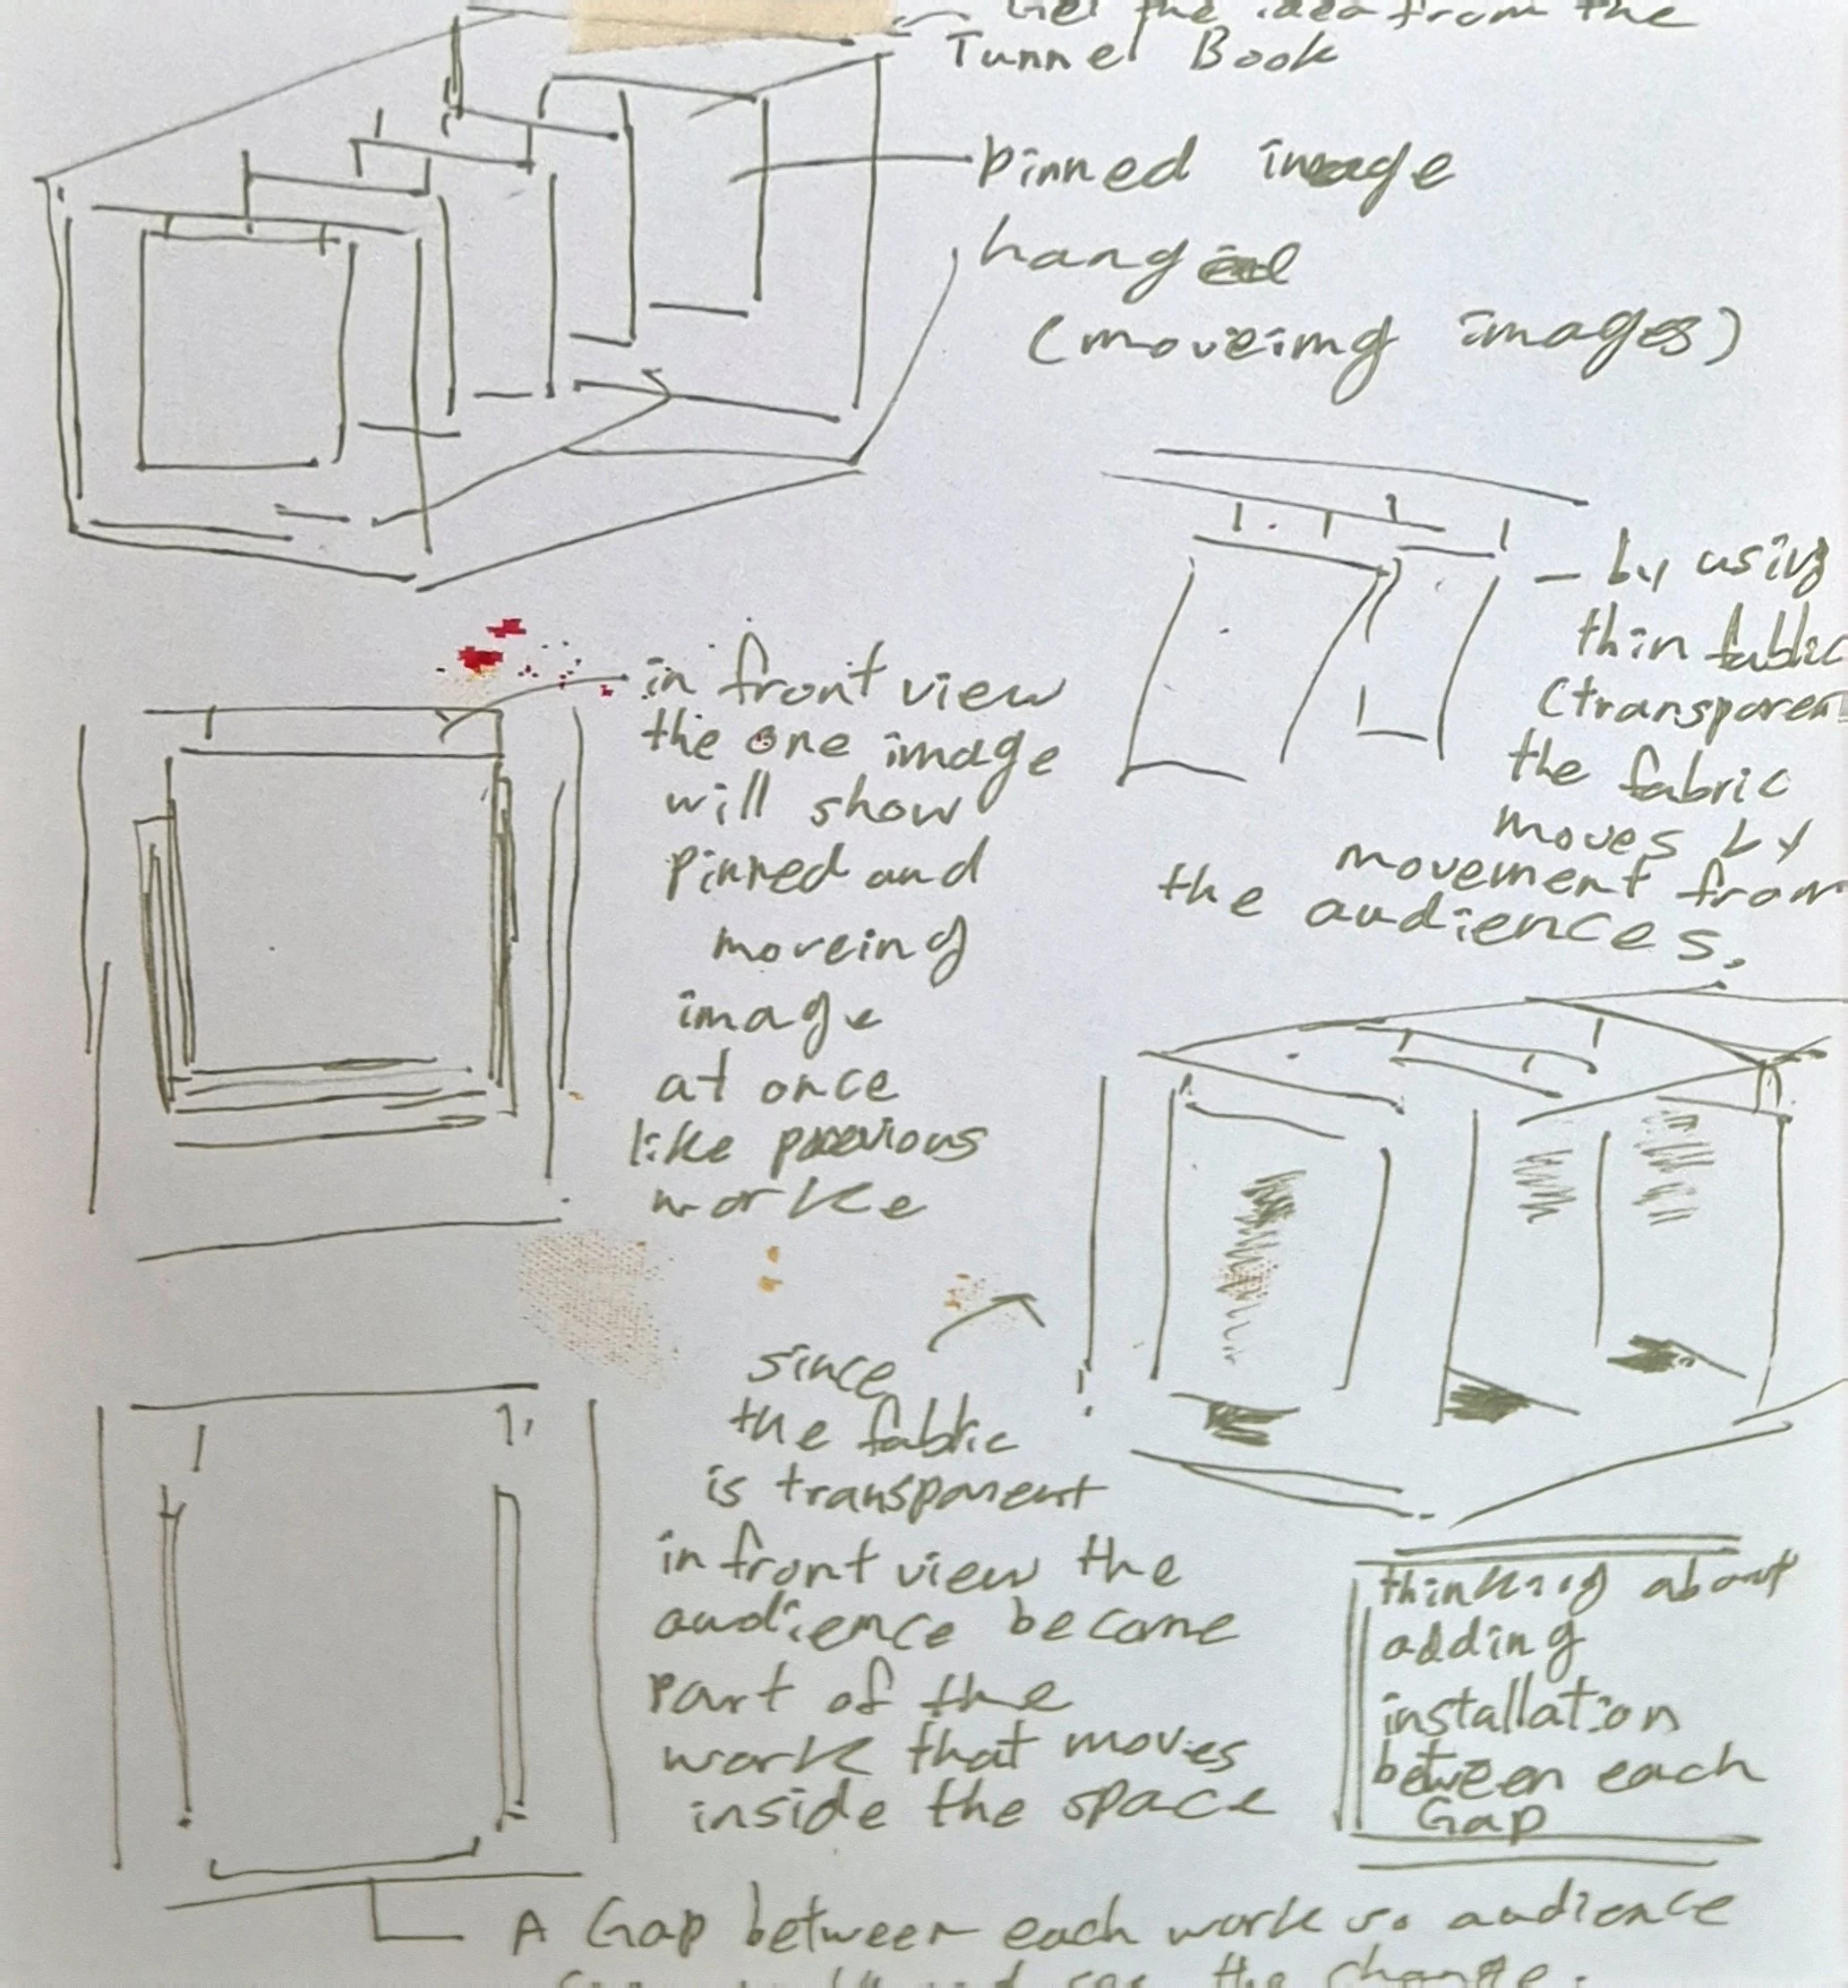 Get the idea from the
Tunnel Book
pinned image
hanged
(moveimg images)
– by using
thin fabric
(transparen
the fabric
moves by
movement from
the audiences.
in front view
the one image
will show
pinned and
moveing
image
at once
like previous
worke
since
the fabric
is transparent
in front view the
audience become
part of the
work that moves
inside the space
thinking about
adding
installation
between each
Gap
A Gap between each work so audience
see the change.